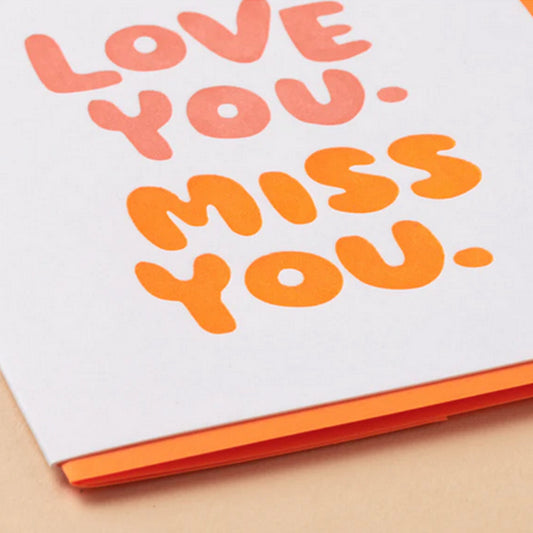 LOVE
YOU.
MISS
YOU.